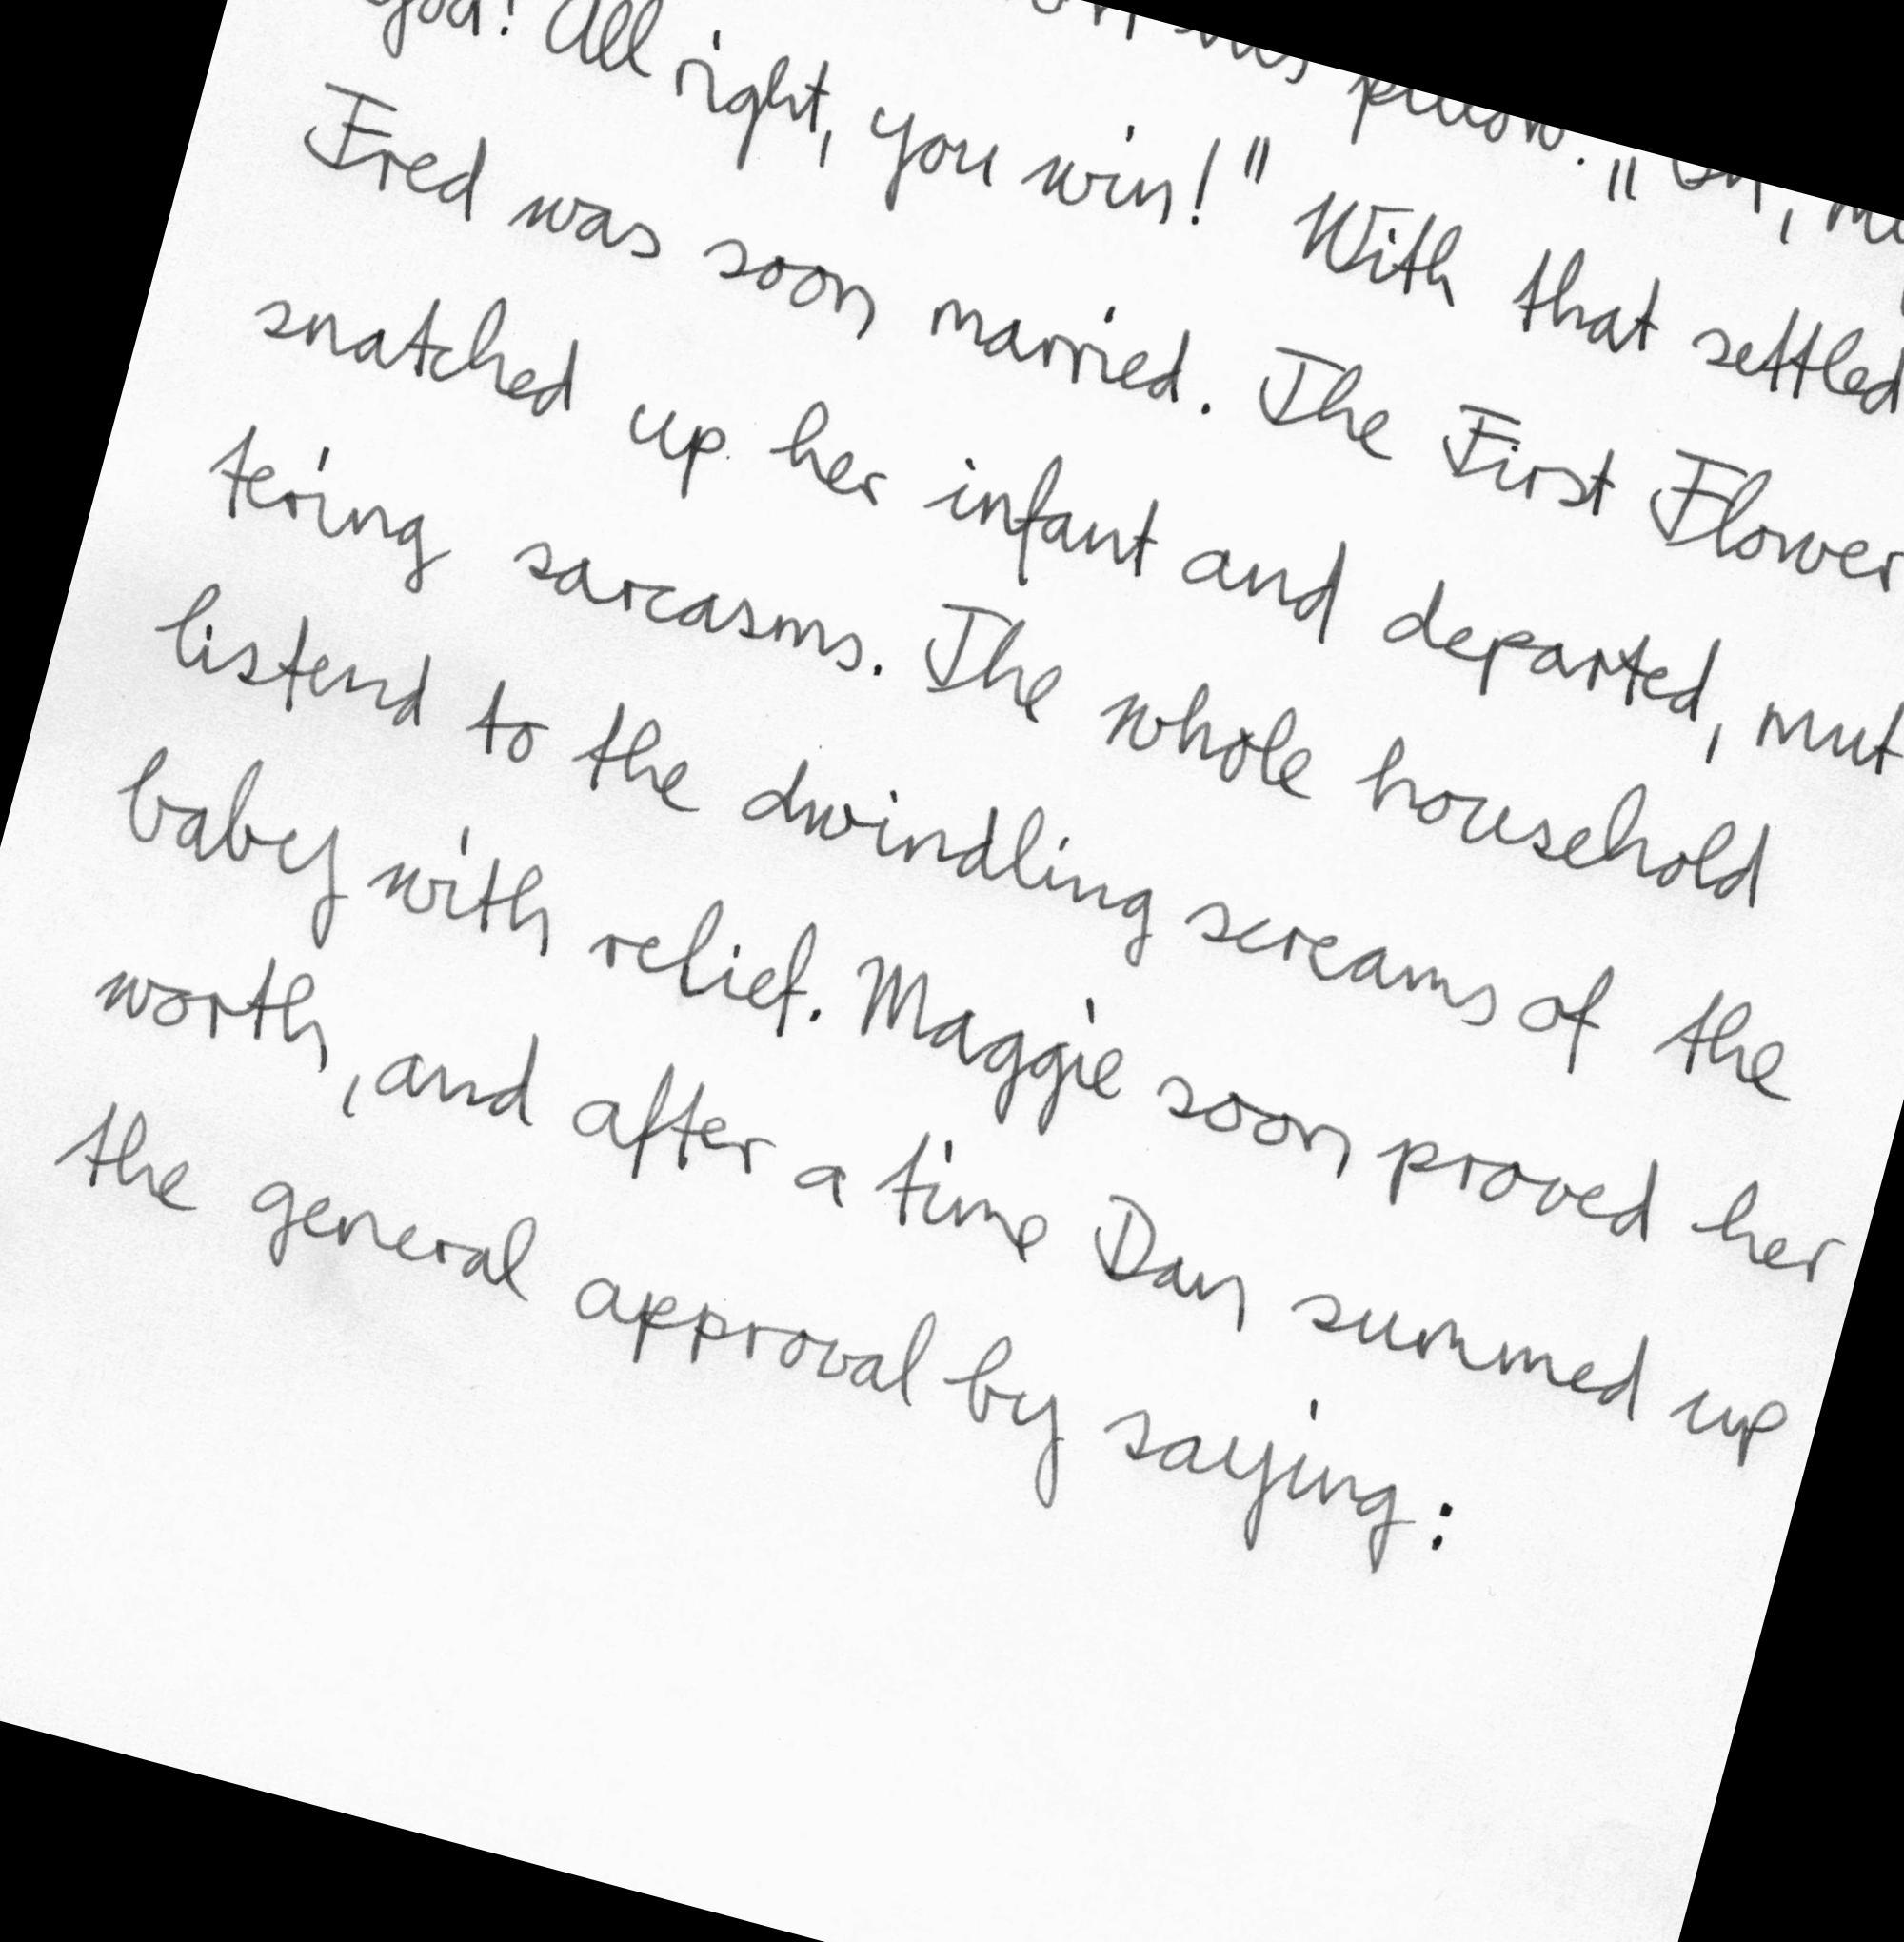 pillow. "Oh, my
God! All right, you win!" With that settled
Fred was soon married. The First Flower
snatched up her infant and departed, mut
tering sarcasms. The whole household
listend to the dwindling screams of the
baby with relief. Maggie soon proved her
worth, and after a time Dan summed up
the general approval by saying: